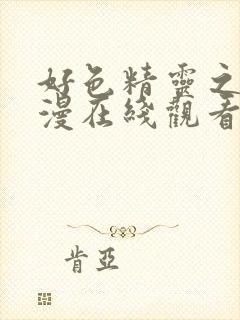 好色精靈之
漫在綫觀看
肯亞